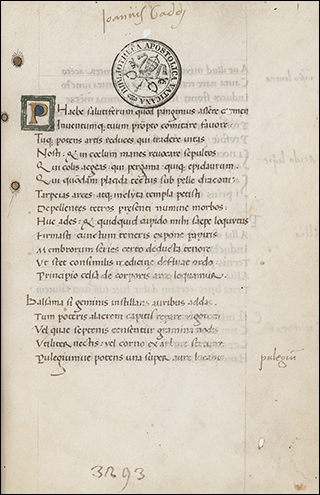 Joannis Gaddj
BIBLIOTHECA APOSTOLICA VATICANA
PHaebe salutiferum quod pangimus assere
Inuentumq; tuum propto comitare fauore
Tuq; potens artis reduces qui tradere uitas
Nosti & in coelum manes reuocare sepultos
Qui colis aegeas: qui pergama: quiq; epidaurum
Qui quondam placida tectus sub pelle draconis
Tarpeias arces: atq; inclyta templa petisti
Depellentes tetros presenti numine morbos:
Huc ades: & quidquid cupido mihi saepe loqutus
Firmasti: cunctum teneris expone papyris
Membrorum series certo deducta tenore
Vt stet consimilis medicinae defluat ordo
Principio celsa de corporis arce loquamur
Balsama si geminis instillans auribus addas
Tum poteris alacrem capitis uigorem
Vel quae septenis censentur gramina nodis
Vtiliter nectis: uel corno ex arbore sertum
Pulegiumue potens una super aure locabis
pulegiu
3293